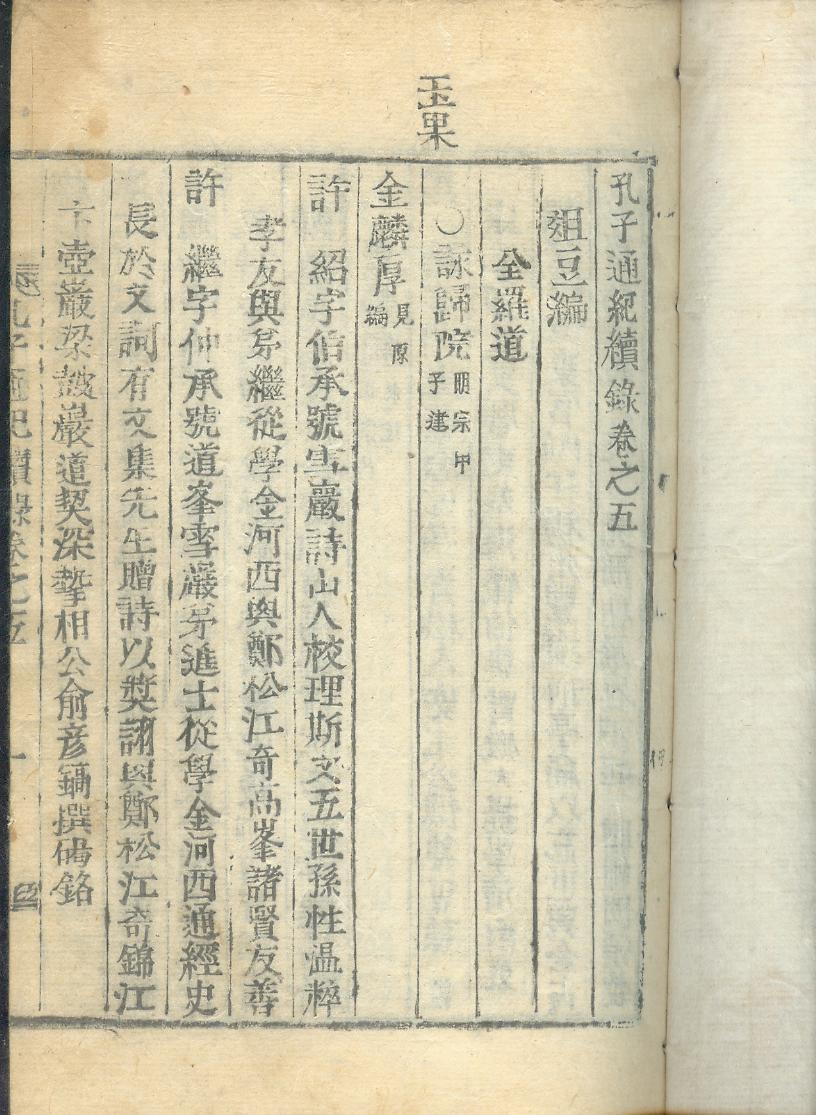 玉果
孔子通紀續錄卷之五
俎豆編
全羅道
○詠歸院 明宗甲子建
金麟厚 見原編
許 紹字伯承號雪巖詩山人校理斯文五世孫性溫粹
孝友與弟繼從學金河西與鄭松江奇高峯諸賢友善
許 繼字仲承號道峯雪巖弟進士從學金河西通經史
長於文詞有文集先生贈詩以奬詡與鄭松江奇錦江
卞壺巖梁鼓巖道契深摯相公兪彦鎬撰碣銘
孔子通紀續錄卷之五 一